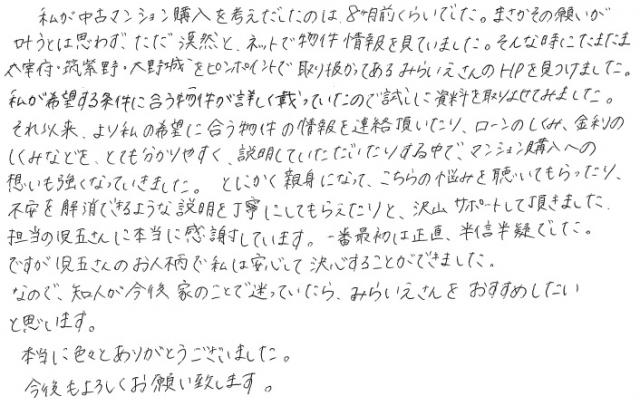 私が中古マンション購入を考えだしたのは、8ヶ月前くらいでした。まさかその願いが
叶うとは思わず、ただ漠然と、ネットで物件情報を見ていました。そんな時にたまたま
太宰府・筑紫野・大野城をピンポイントで取り扱かってあるみらいえさんのHPを見つけました。
私が希望する条件に合う物件が詳しく載っていたので試しに資料を取りよせてみました。
それ以来、より私の希望に合う物件の情報を連絡頂いたり、ローンのしくみ、金利の
しくみなどを、とても分かりやすく、説明していただいたりする中で、マンション購入への
想いも強くなっていきました。とにかく親身になって、こちらの悩みを聴いてもらったり、
不安を解消できるような説明を丁寧にしてもらえたりと、沢山サポートして頂きました。
担当の児玉さんに本当に感謝しています。一番最初は正直、半信半疑でした。
ですが児玉さんのお人柄で私は安心して決心することができました。
なので、知人が今後家のことで迷っていたら、みらいえさんをおすすめしたい
と思います。
本当に色々とありがとうございました。
今後もよろしくお願い致します。